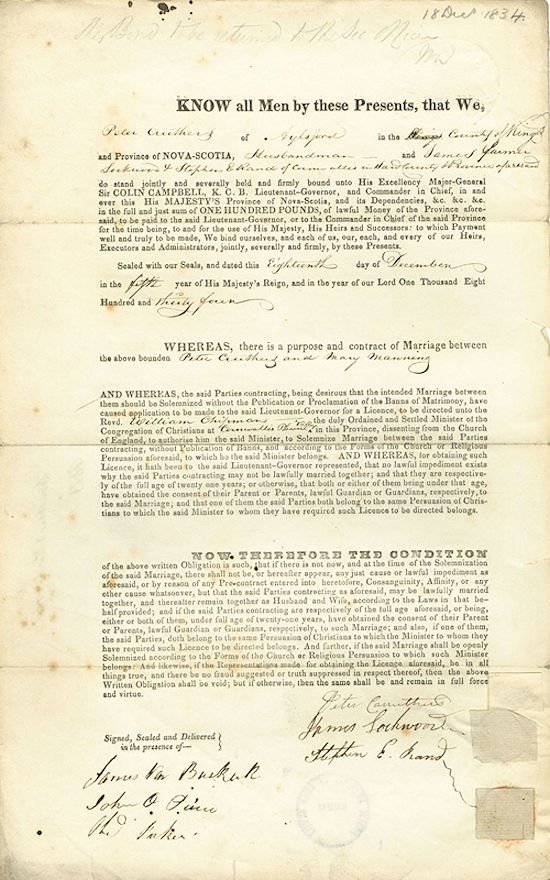 18 Decr 1834.
This Bond to be returned to the Sec
KNOW all Men by these Presents, that We,
Peter Cruthers of Aylsford in the County of Kings
and Province of NOVA-SCOTIA, Husbandman and James
Lockwood & Stephen E Rand of Cornwallis in County aforesaid
do stand jointly and severally held and firmly bound unto His Excellency Major-General
Sir COLIN CAMPBELL, K. C. B. Lieutenant-Governor, and Commander in Chief, in and
over this His MAJESTY'S Province of Nova-Scotia, and its Dependencies, &c. &c. &c.
in the full and just sum of ONE HUNDRED POUNDS, of lawful Money of the Province afore-
said, to be paid to the said Lieutenant-Governor, or to the Commander in Chief of the said Province
for the time being, to and for the use of His Majesty, His Heirs and Successors: to which Payment
well and truly to be made, We bind ourselves, and each of us, our, each, and every of our Heirs,
Executors and Administrators, jointly, severally, and firmly, by these Presents.
Sealed with our Seals, and dated this Eighteenth day of December
in the fifth year of His Majesty's Reign, and in the year of our Lord One Thousand Eight
Hundred and thirty four
WHEREAS, there is a purpose and contract of Marriage between
the above bounden Peter Cruthers and Mary Manning
AND WHEREAS, the said Parties contracting, being desirous that the intended Marriage between
them should be Solemnized without the Publication or Proclamation of the Banns of Matrimony, have
caused application to be made to the said Lieutenant-Governor for a Licence, to be directed unto the
Revd. William Chipman the duly Ordained and Settled Minister of the
Congregation of Christians at Cornwallis in this Province, dissenting from the Church
of England, to authorise him the said Minister, to Solemnize Marriage between the said Parties
contracting, without Publication of Banns, and according to the Forms of the Church or Religious
Persuasion aforesaid, to which he the said Minister belongs. AND WHEREAS, for obtaining such
Licence, it hath been to the said Lieutenant-Governor represented, that no lawful impediment exists
why the said Parties contracting may not be lawfully married together; and that they are respective-
ly of the full age of twenty one years; or otherwise, that both or either of them being under that age,
have obtained the consent of their Parent or Parents, lawful Guardian or Guardians, respectively, to
the said Marriage; and that one of them the said Parties both belong to the same Persuasion of Chris-
tians to which the said Minister to whom they have required such Licence to be directed belongs.
NOW THEREFORE THE CONDITION
of the above written Obligation is such, that if there is not now, and at the time of the Solemnization
of the said Marriage, there shall not be, or hereafter appear, any just cause or lawful impediment as
aforesaid, or by reason of any Pre-contract entered into heretofore, Consanguinity, Affinity, or any
other cause whatsoever, but that the said Parties contracting as aforesaid, may be lawfully married
together, and thereafter remain together as Husband and Wife, according to the Laws in that be-
half provided; and if the said Parties contracting are respectively of the full age aforesaid, or being,
either or both of them, under full age of twenty-one years, have obtained the consent of their Parent
or Parents, lawful Guardian or Guardians, respectively, to such Marriage; and also, if one of them,
the said Parties, doth belong to the same Persuasion of Christians to which the Minister to whom they
have required such Licence to be directed belongs. And further, if the said Marriage shall be openly
Solemnized according to the Forms of the Church or Religious Persuasion to which such Minister
belongs: And likewise, if the Representations made for obtaining the Licence aforesaid, be in all
things true, and there be no fraud suggested or truth suppressed in respect thereof, then the above
Written Obligation shall be void; but if otherwise, then the same shall be and remain in full force
and virtue.
Peter Carruthers
James Lockwood
Stephen E. Rand
Signed, Sealed and Delivered
in the presence of—
James Van Buskirk
John O